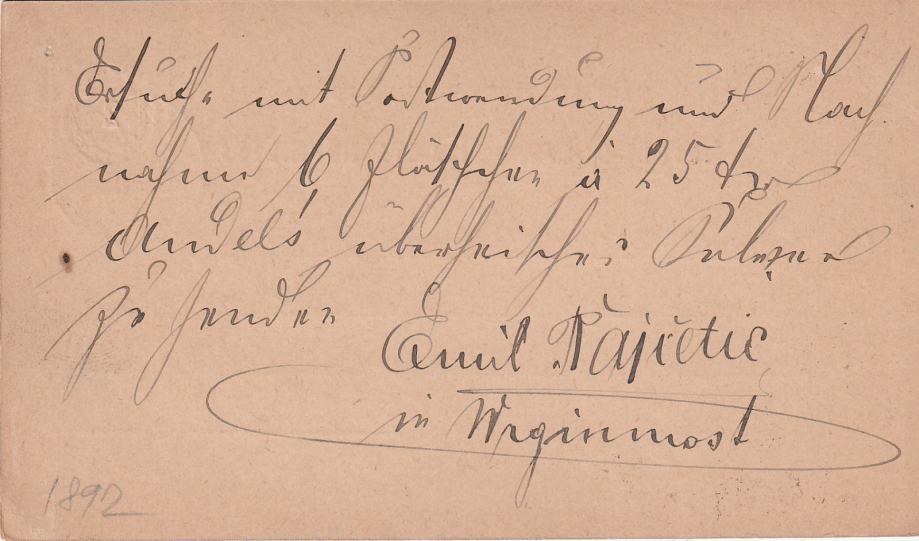 Ersuche mit Postwendung und Nach
nahme 6 Fläschchen à 25 xr
Andel's überseeisches Pulver
zu senden
Emil Pajičetić
in Wrginmost
1892